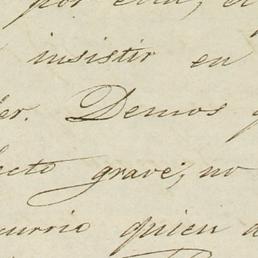 por esta, el
insistir en
er. Demos
ecto grave; no
currio quien